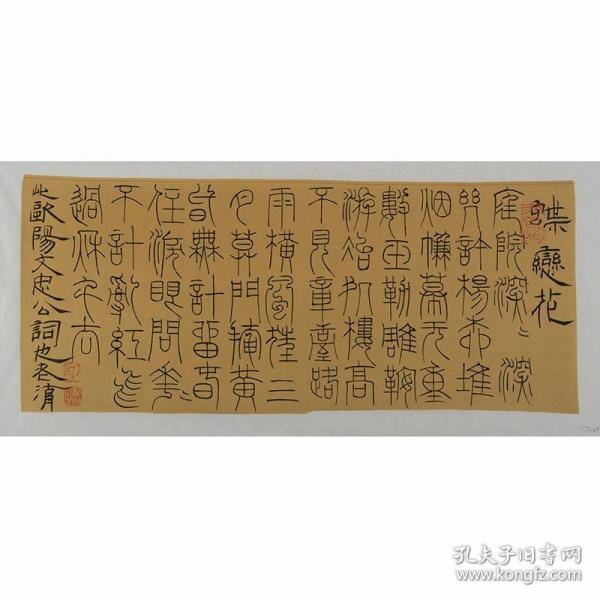 蝶戀花
庭院深〻深
幾許楊柳堆
烟簾幕无重
數玉勒雕鞍
游冶処樓高
不見章臺路
雨橫風狂三
月莫門掩黃
昏無計留春
住淚眼問花〻
不 亂紅飛
過秋千去
此歐陽文忠公詞也
孔夫子旧书网
www.kongfz.com